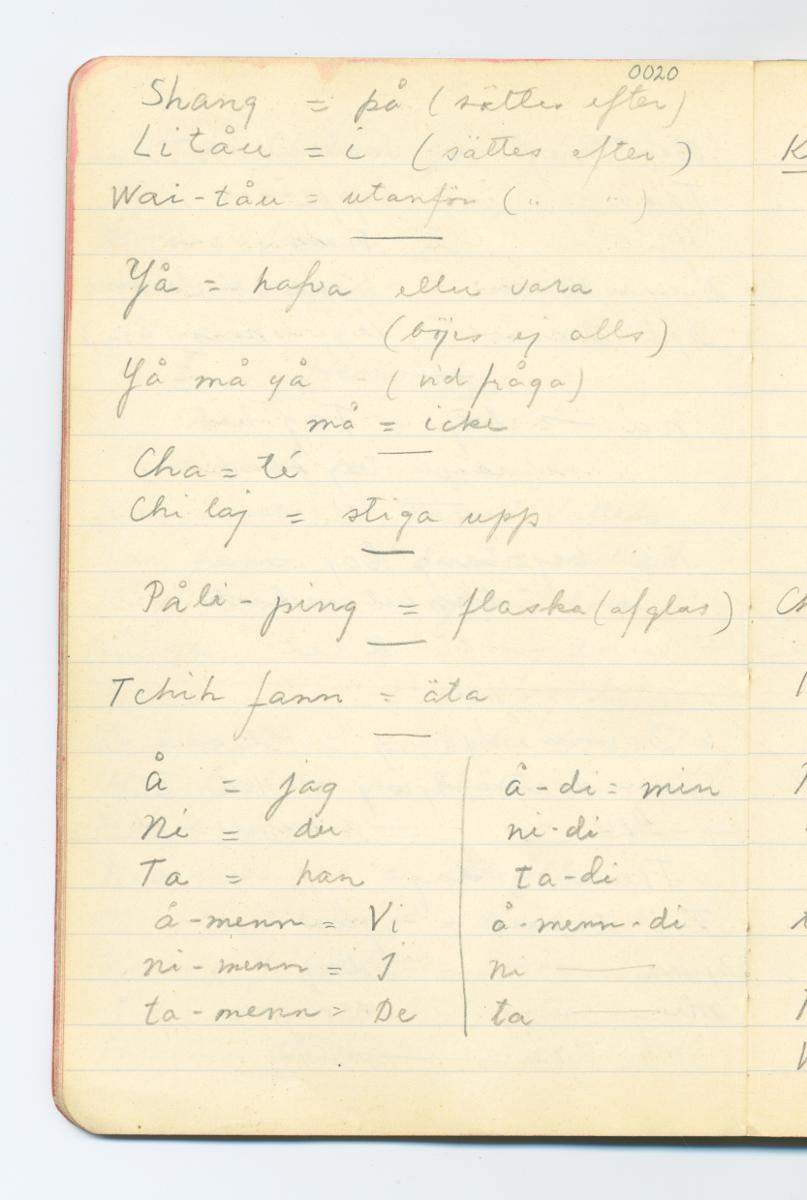 0020
Shang = på (sättes efter)
Litåu = i (sättes efter)
Wai-tåu = utanför ( " " )
Yå = hafva eller vara
(böjes ej alls)
Yå må yå - (vid fråga)
må = icke
Cha = té
Chi laj = stiga upp
Påli-ping = flaska (af glas)
Tchih fann = äta
Å = jag å-di = min
Ni = du ni-di
Ta = han ta-di
å-menn = Vi å-menn-di
ni-menn = I ni —
ta-menn = De ta —